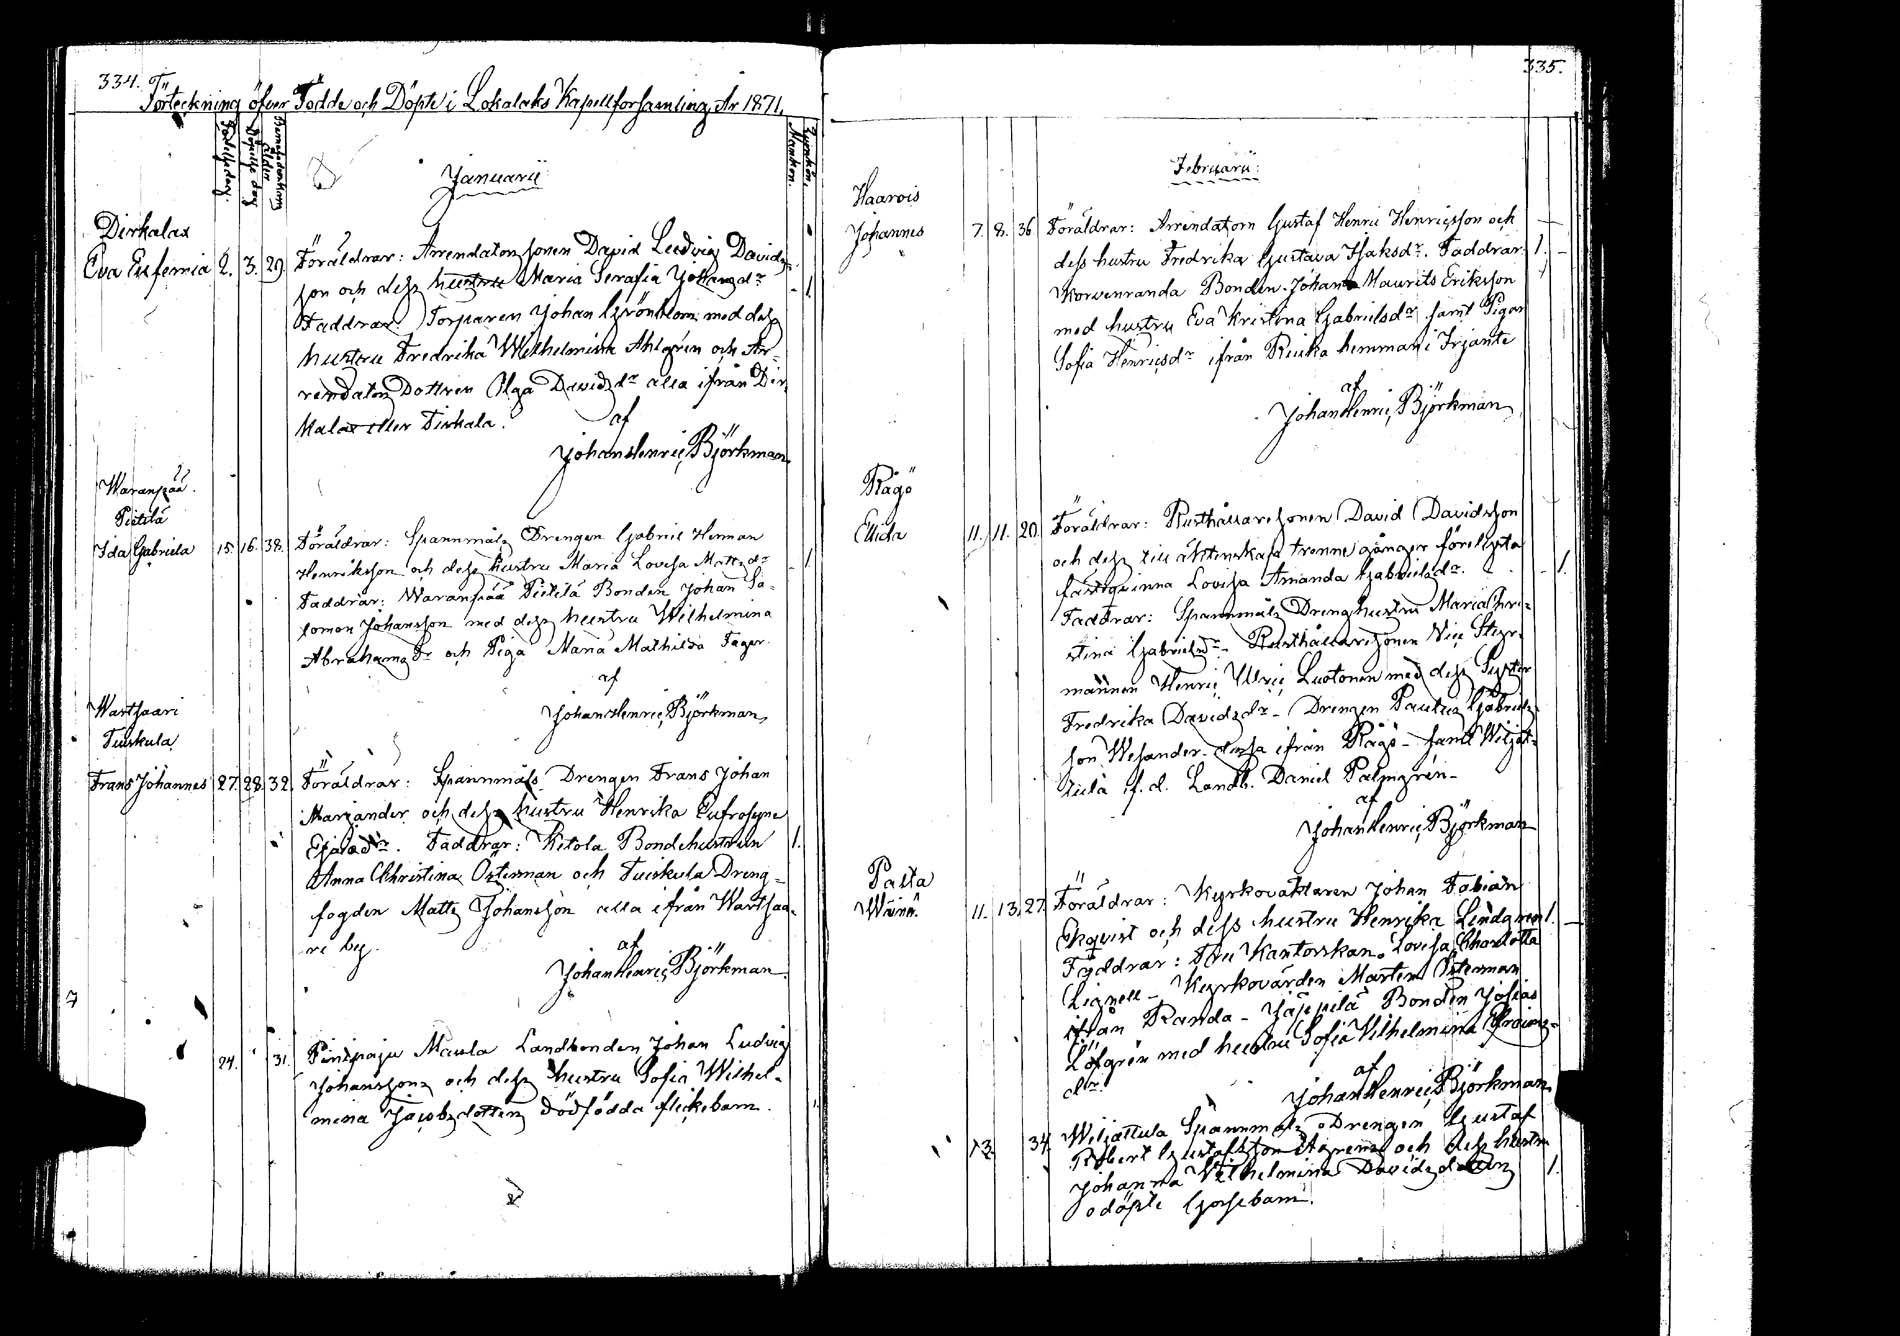 334.
Förteckning öfver Födde och Döpte i Lokalaks Kapellforsamling År 1871.
Födelsedag.
Döpelse dag
Barnaföderskans ålder
Mankön.
Qvinkön.
Januarii
Dirkalax
Eva Eufemia 2. 3. 29. Föräldrar: Arrendators sonen David Ludvig Davids-
son och dess hustru Maria Serafia Johansdr
Faddrar: Torparen Johan Grönblom med dess
hustru Fredrika Wilhelmina Ahlgrén och Ar-
rendators Dottren Olga Davidsdr alla ifrån Dir-
kalax eller Tirkala.
af
Johan Henric Björkman.
1.
Waranpää.
Pietilä
Ida Gabriela 15. 16. 38. Föräldrar: Spannmåls Drengen Gabriel Herman
Henriksson och dess hustru Maria Lovisa Mattsdr
Faddrar: Waranpää Pietilä Bonden Johan Sa-
lomon Johansson med dess hustru Wilhelmina
Abrahamsdr och Piga Maria Mathilda Fager.
af
Johan Henric Björkman,
1
Wartsaari
Tuiskula
Frans Johannes 27. 28. 32. Föräldrar: Spannmåls Drengen Frans Johan
Marjander och dess hustru Henrika Eufrosyne
Esaiædr. Faddrar: Ketola Bondehustrun
Anna Christina Österman och Tuiskula Dreng-
fogden Matts Johansson alla ifrån Wartsaa-
ri by.
af
Johan Henric Björkman.
1.
24. 31. Pinipaju Maula Landbonden Johan Ludvig
Johanssons och dess hustru Sofia Wilhel-
mina Jacobsdotters dödfödda flickebarn.
335.
Februarii:
Haarois
Johannes 7. 8. 36 Föräldrar: Arrendatorn Gustaf Henric Henricsson och
dess hustru Fredrika Gustava Isaksdr. Faddrar:
Korvenranda Bonden Johan Maurits Eriksson
med hustru Eva Kristina Gabrielsdr samt Pigan
Sofia Henricsdr ifrån Riuka hemman i Irjante
af
Johan Henric Björkman,
1.
Rägö
Ellida 11. 11. 20. Föräldrar: Rusthållaresonen David Davidsson
och dess till äktenskap trenne gånger förelysta
fästeqvinna Lovisa Amanda Gabrielsdr.
Faddrar: Spannmåls Dreng hustru Maria Chri-
stina Gabrielsdr - Rusthållaresonen Vice Styr-
mannen Henric Ulric Luotonen med dess Syster
Fredrika Davidsdr - Drengen Paulus Gabriels-
son Wesander dessa ifrån Rägö - samt Wiljat-
tula f. d. Landb. Daniel Palmgrén -
af
Johan Henric Björkman
1.
Palta
Wäinö. 11. 13. 27. Föräldrar: Kyrkovaktaren Johan Fabian
Ekqvist och dess hustru Henrika Lindgren
Faddrar: Fru Kantorskan Lovisa Charlotta
Lignell - Kyrkovärden Marten Österman
ifrån Randa - Jäppilä Bonden Josias
Löfgrén med hustru Sofia Vilhelmina
dr.
af
Johan Henric Björkman
1.
13. 34. Wiljattula Spannmåls Drengen Gustaf
Robert Gustafsson Agréns och dess hustru
Johanna Vilhelmina Davidsdotters
odöpte Gossebarn.
1.